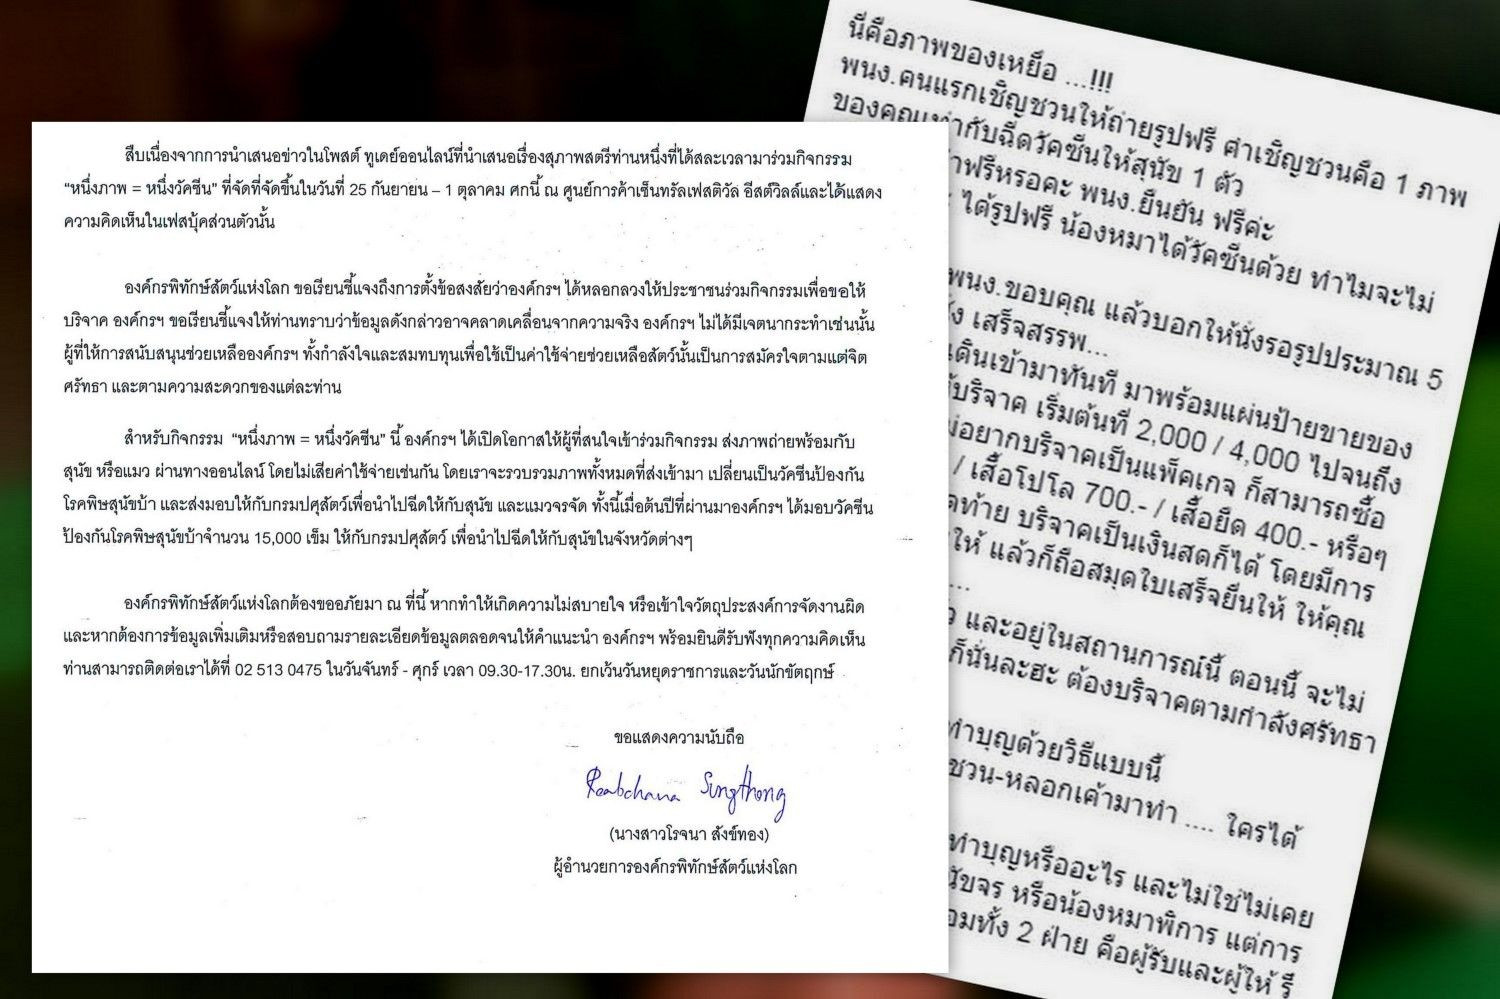 สืบเนื่องจากการนำเสนอข่าวในโพสต์ ทูเดย์ออนไลน์ที่นำเสนอเรื่องสุภาพสตรีท่านหนึ่งที่ได้สละเวลามาร่วมกิจกรรม
“หนึ่งภาพ = หนึ่งวัคซีน” ที่จัดที่จัดขึ้นในวันที่ 25 กันยายน – 1 ตุลาคม ศกนี้ ณ ศูนย์การค้าเซ็นทรัลเฟสติวัล อีสต์วิลล์และได้แสดง
ความคิดเห็นในเฟสบุ้คส่วนตัวนั้น
องค์กรพิทักษ์สัตว์แห่งโลก ขอเรียนชี้แจงถึงการตั้งข้อสงสัยว่าองค์กรฯ ได้หลอกลวงให้ประชาชนร่วมกิจกรรมเพื่อขอให้
บริจาค องค์กรฯ ขอเรียนชี้แจงให้ท่านทราบว่าข้อมูลดังกล่าวอาจคลาดเคลื่อนจากความจริง องค์กรฯ ไม่ได้มีเจตนากระทำเช่นนั้น
ผู้ที่ให้การสนับสนุนช่วยเหลือองค์กรฯ ทั้งกำลังใจและสมทบทุนเพื่อใช้เป็นค่าใช้จ่ายช่วยเหลือสัตว์นั้นเป็นการสมัครใจตามแต่จิต
ศรัทธา และตามความสะดวกของแต่ละท่าน
สำหรับกิจกรรม “หนึ่งภาพ = หนึ่งวัคซีน” นี้ องค์กรฯ ได้เปิดโอกาสให้ผู้ที่สนใจเข้าร่วมกิจกรรม ส่งภาพถ่ายพร้อมกับ
สุนัข หรือแมว ผ่านทางออนไลน์ โดยไม่เสียค่าใช้จ่ายเช่นกัน โดยเราจะรวบรวมภาพทั้งหมดที่ส่งเข้ามา เปลี่ยนเป็นวัคซีนป้องกัน
โรคพิษสุนัขบ้า และส่งมอบให้กับกรมปศุสัตว์เพื่อนำไปฉีดให้กับสุนัข และแมวจรจัด ทั้งนี้เมื่อต้นปีที่ผ่านมาองค์กรฯ ได้มอบวัคซีน
ป้องกันโรคพิษสุนัขบ้าจำนวน 15,000 เข็ม ให้กับกรมปศุสัตว์ เพื่อนำไปฉีดให้กับสุนัขในจังหวัดต่างๆ
องค์กรพิทักษ์สัตว์แห่งโลกต้องขออภัยมา ณ ที่นี้ หากทำให้เกิดความไม่สบายใจ หรือเข้าใจวัตถุประสงค์การจัดงานผิด
และหากต้องการข้อมูลเพิ่มเติมหรือสอบถามรายละเอียดข้อมูลตลอดจนให้คำแนะนำ องค์กรฯ พร้อมยินดีรับฟังทุกความคิดเห็น
ท่านสามารถติดต่อเราได้ที่ 02 513 0475 ในวันจันทร์ - ศุกร์ เวลา 09.30-17.30น. ยกเว้นวันหยุดราชการและวันนักขัตฤกษ์
ขอแสดงความนับถือ
(นางสาวโรจนา สังข์ทอง)
ผู้อำนวยการองค์กรพิทักษ์สัตว์แห่งโลก
นี่คือภาพของเหยื่อ ...!!!
พนง.คนแรกเชิญชวนให้ถ่ายรูปฟรี คำเชิญชวนคือ 1 ภาพ
ของคุณเท่ากับฉีดวัคซีนให้สุนัข 1 ตัว
ฟรีหรอคะ พนง.ยืนยัน ฟรีค่ะ
ได้รูปฟรี น้องหมาได้วัคซีนด้วย ทำไมจะไม่
พนง.ขอบคุณ แล้วบอกให้นั่งรอรูปประมาณ 5
เสร็จสรรพ...
เดินเข้ามาทันที มาพร้อมแผ่นป้ายขายของ
บริจาค เริ่มต้นที่ 2,000 / 4,000 ไปจนถึง
อยากบริจาคเป็นแพ็คเกจ ก็สามารถซื้อ
/ เสื้อโปโล 700.- / เสื้อยืด 400.- หรือๆ
ท้าย บริจาคเป็นเงินสดก็ได้ โดยมีการ
ให้ แล้วก็ถือสมุดใบเสร็จยืนให้ ให้คุณ
...
และอยู่ในสถานการณ์นี้ ตอนนี้ จะไม่
ก็นั่นละฮะ ต้องบริจาคตามกำลังศรัทธา
ทำบุญด้วยวิธีแบบนี้
ชวน-หลอกเค้ามาทำ .... ใครได้
ทำบุญหรืออะไร และไม่ใช่ไม่เคย
หรือน้องหมาพิการ แต่การ
ทั้ง 2 ฝ่าย คือผู้รับและผู้ให้ รึ